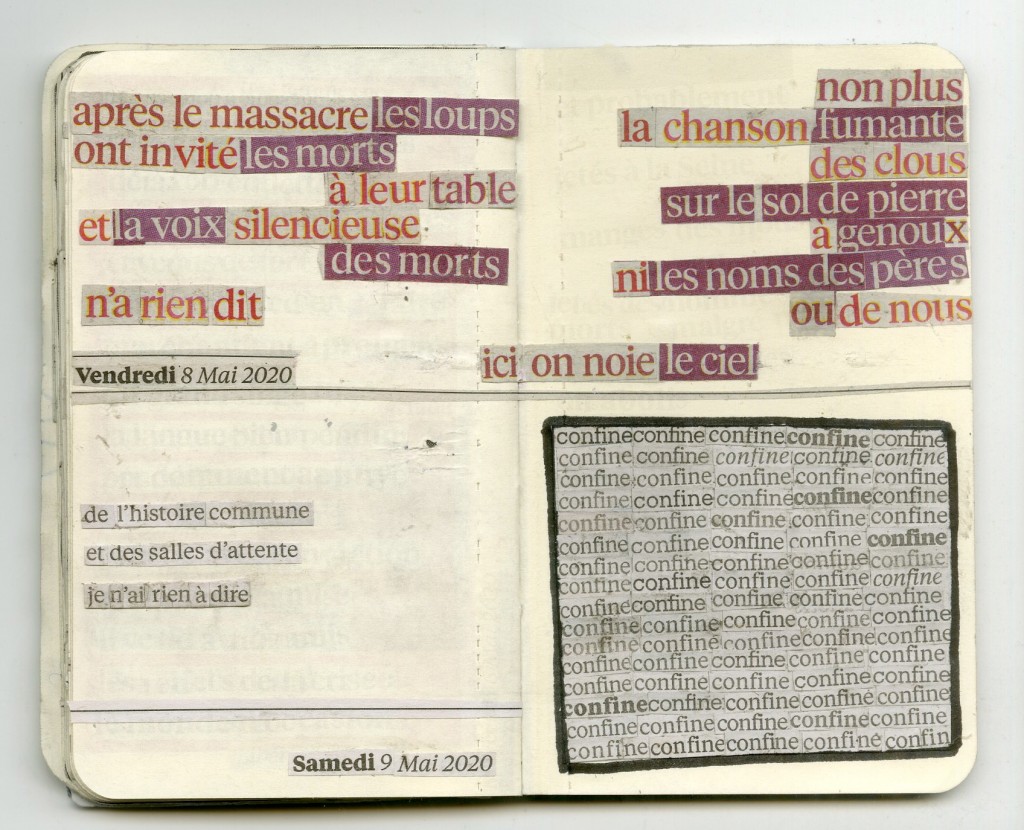 après le massacre les loups
ont invité les morts
à leur table
et la voix silencieuse
des morts
n'a rien dit
non plus
la chanson fumante
des clous
sur le sol de pierre
à genoux
ni les noms des pères
ou de nous
ici on noie le ciel
Vendredi 8 Mai 2020
de l'histoire commune
et des salles d'attente
je n'ai rien à dire
confine confine confine confine confine
confine confine confine confine confine
confine confine confine confine confine
confine confine confine confine confine
confine confine confine confine confine
confine confine confine confine confine
confine confine confine confine confine
confine confine confine confine confine
confine confine confine confine confine
confine confine confine confine confine
confine confine confine confine confine
confine confine confine confine confine
confine confine confine confine confine
confine confine confine confine confine
confine confine confine confine confine
confine confine confine confine confin
Samedi 9 Mai 2020